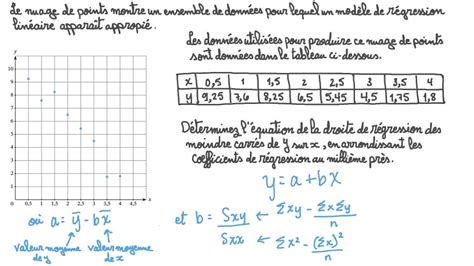 Le nuage de points montre un ensemble de données pour lequel un modèle de régression
linéaire apparaît approprié.
Les données utilisées pour produire ce nuage de points
sont données dans le tableau ci-dessous.
x 0,5 1 1,5 2 2,5 3 3,5 4
y 9,25 7,6 8,25 6,5 5,45 4,5 1,75 1,8
Déterminez l'équation de la droite de régression des
moindre carrés de y sur x, en arrondissant les
coefficients de régression au millième près.
y = a + bx
y
10
9
8
7
6
5
4
3
2
1
0,5 1 1,5 2 2,5 3 3,5 4 4,5 x
où a = y̅ - bx̅
valeur moyenne de y
valeur moyenne de x
et b = Sxy ← Σxy - ΣxΣy/n
Sxx ← Σx² - (Σx)²/n